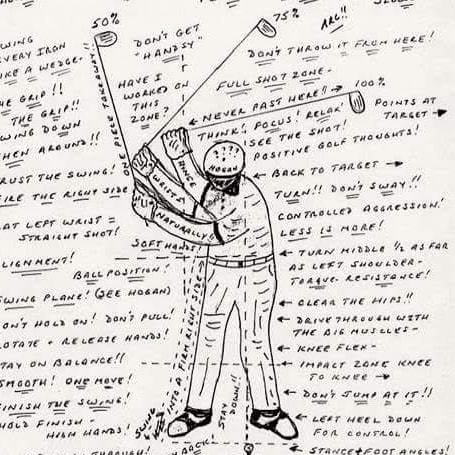 50%
75%
ARG!!
DON'T GET
"HANDSY"
SWING
EVERY IRON
LIKE A WEDGE-
DON'T THROW IT FROM HERE!
HAVE I
WORKED ON
THIS
ZONE?
FULL SHOT ZONE-
100%
NEVER PAST HERE!!
THE GRIP!!
THE GRIP!!
SWING DOWN
THEN AROUND!!
ONE PIECE TAKEAWAY!!
THINK! FOCUS! RELAX!
POINTS AT
TARGET
SEE THE SHOT!
POSITIVE GOLF THOUGHTS!
????
HOGAN
HINGE
WRISTS
NATURALLY!
TRUST THE SWING!
FIRE THE RIGHT SIDE
BACK TO TARGET
TURN!! DON'T SWAY!!
CONTROLLED AGGRESSION!
LESS IS MORE!
FLAT LEFT WRIST =
STRAIGHT SHOT!
SOFT HANDS!
ALIGNMENT!
BALL POSITION!
TURN MIDDLE 1/2 AS FAR
AS LEFT SHOULDER-
TORQUE- RESISTANCE!
SWING PLANE! (SEE HOGAN)
CLEAR THE HIPS!!
DON'T HOLD ON! DON'T PULL!
ROTATE + RELEASE HANDS!
DRIVE THROUGH WITH
THE BIG MUSCLES-
KNEE FLEX-
STAY ON BALANCE!!
SMOOTH! ONE MOVE!
IMPACT ZONE KNEE
TO KNEE
FINISH THE SWING!
DON'T JUMP AT IT!!
HOLD FINISH -
HIGH HANDS!
SWING
INTO A FIRM RIGHT SIDE
STAY
DOWN!!
LEFT HEEL DOWN
FOR CONTROL!
THROUGH!
BACK
STANCE + FOOT ANGLES!